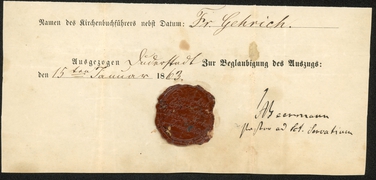 Namen des Kirchenbuchführers nebst Datum: Fr. Gehrich.
Ausgezogen Duderstadt Zur Beglaubigung des Auszugs:
den 15ten Januar 1863.
Pastor ad Sct. Servatium